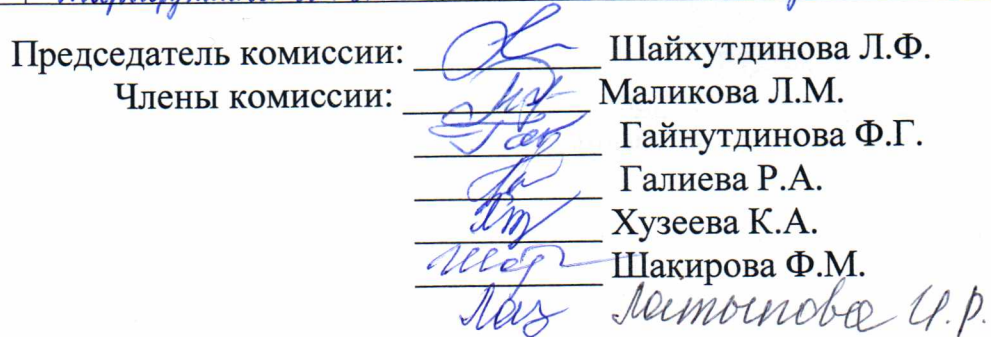 Председатель комиссии: Шайхутдинова Л.Ф.
Члены комиссии: Маликова Л.М.
Гайнутдинова Ф.Г.
Галиева Р.А.
Хузеева К.А.
Шакирова Ф.М.
Латыпова И.Р.